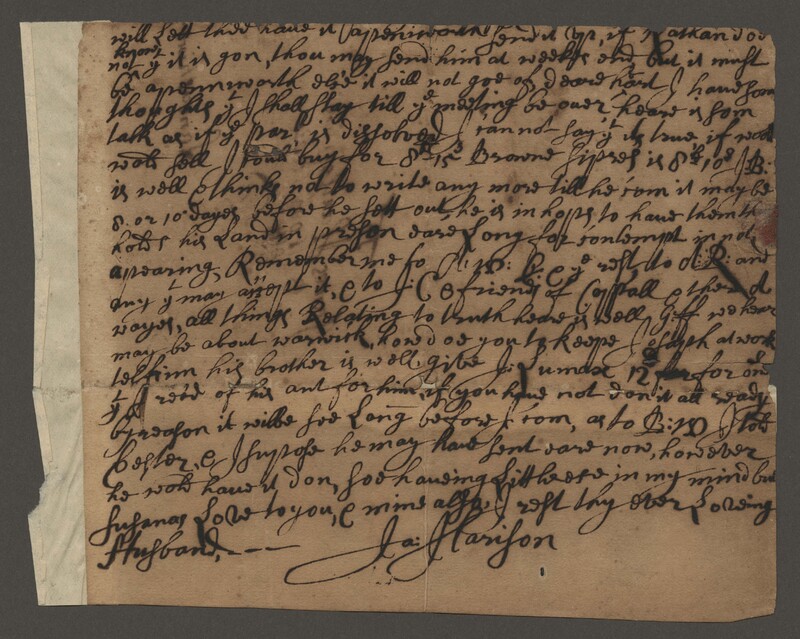 will lett thee have it apeniworth send it up, if Nathan doe
know
not yt it is gon, thou may send him at weekes end but it must
be apenworth else it will not goe of deare hart I have som
thoughts yt I shall stay till ye meeting be over heare is som
talk as if ye par: is dissolved I can not say yt its true if
wold sell I buy for 8 15 Browne is 8 10 J:B:
is well & thinks not to write any more till he com it may be
8 or 10 dayes before he sett out, he is in hopps to have them
holds his Land in preson eare Long for contempt in not
apearing, Remember me to ye rest to and
any yt may accept it, & to J:C & friends of & ther a
wayes, all things Relating to truth heare is well, Geff we hear
may be about warwick, how doe you to keepe Joseph at work
tel him his brother is well, give J: Lumax 12 for for
yt I rec'd of his ant for him, if you have not don it all ready
by reason it wilbe soe Long before I com, as to B: I told
hester, & I supose he may have sent eare now, however
he wold have it don, soe haveing Little else in my mind but
Susanas Love to you, & mine allso I rest thy ever Loveing
Husband, - - - Ja: Harison